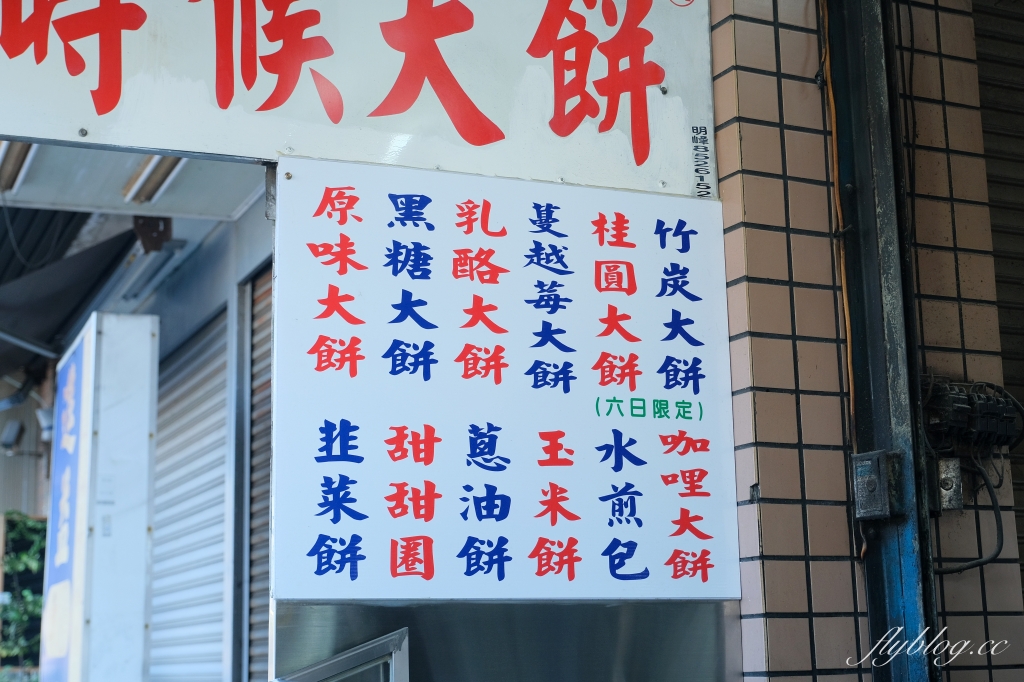 時候大餅
明峰8526152
竹炭大餅
桂圓大餅
(六日限定)
蔓越莓大餅
乳酪大餅
黑糖大餅
原味大餅
咖哩大餅
水煎包
玉米餅
蔥油餅
甜甜圈
韭菜餅
flyblog.cc